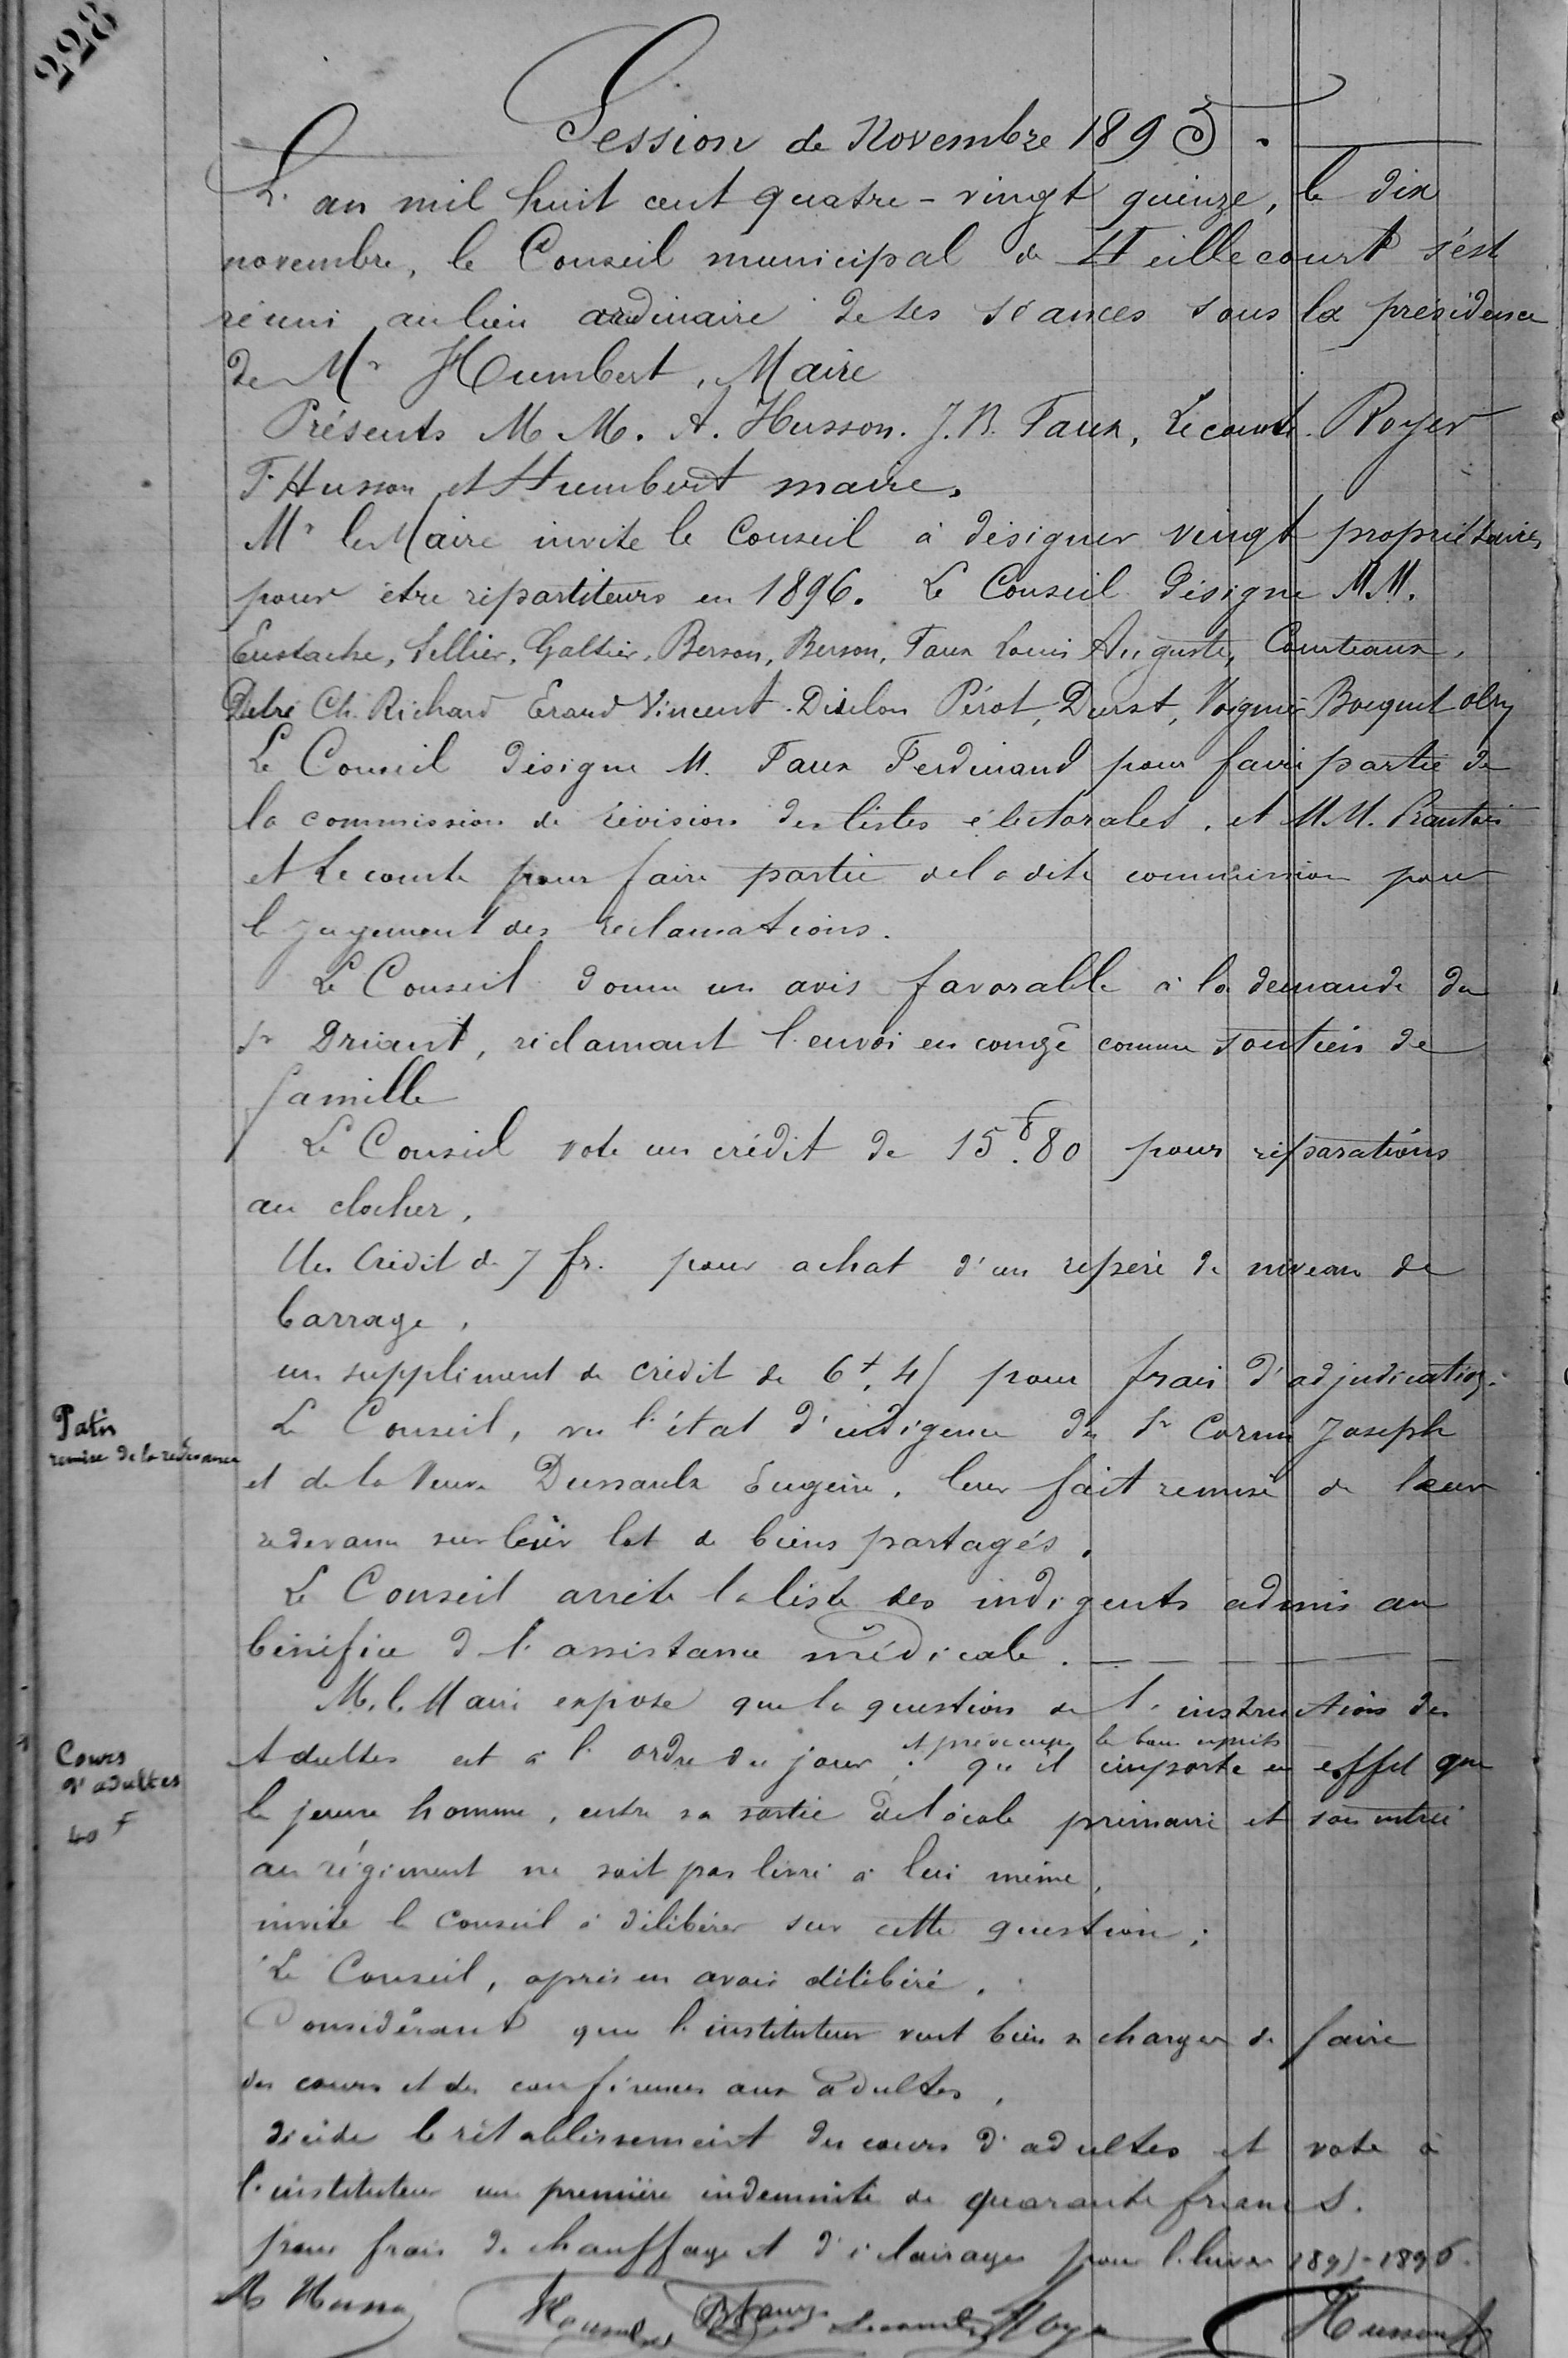 228
Session de Novembre 1895.
L'an mil huit cent quatre-vingt quinze, le dix
novembre, le Conseil municipal de Heillecourt s'est
réuni au lieu ordinaire de ses séances sous la présidence
de Mr Humbert, Maire
Présents M M. A. Husson. J.B. Faux, Lecomte. Royer
F Husson et Humbert maire.
Mr le Maire invite le Conseil à désigner vingt propriétaires
pour être répartiteurs en 1896. Le Conseil désigne M.M.
Eustache, Sellier, Galtier, Berson, Berson, Faux Louis Auguste, Courteaux,
Ch. Richard Erard Vincent Pérot, Durst, Voignier Bocquet Olry
Le Conseil désigne M. Faux Ferdinand pour faire partie de
la commission de révision des listes électorales, et M.M.
et Lecomte pour faire partie de la dite commission pour
le jugement des réclamations.
Le Conseil donne un avis favorable à la demande du
Sr Driant, réclamant l'envoi en congé comme soutien de
famille
Le Conseil vote un crédit de 15f.80 pour réparations
au clocher,
Un Crédit de 7 fr. pour achat d'un repère de niveau de
barrage,
un supplément de crédit de 6f,45 pour frais d'adjudication.
Patis
remise de la redevance
Le Conseil, vu l'état d'indigence du Sr Joseph
et de la Veuve Dussaulx Eugénie, leur fait remise de leur
redevance sur leur lot de biens partagés.
Le Conseil arrête la liste des indigents admis au
bénéfice de l'assistance médicale.
M. le Maire expose que la question de l'instruction des
Cours
d'adultes
40 f
et préoccupe les bons esprits
Adultes est à l'ordre du jour ; qu'il importe en effet que
le jeune homme, entre sa sortie de l'école primaire et son entrée
au régiment ne soit pas livré à lui même,
invite le Conseil à délibérer sur cette question ;
Le Conseil, après en avoir délibéré,
Considérant que l'instituteur veut bien se charger de faire
des cours et des conférences aux adultes,
décide le rétablissement du cours d'adultes et vote à
l'instituteur une première indemnité de quarante francs.
pour frais de chauffage et d'éclairage pour l'hiver 1895-1896.
A Husson Humbert Faux Lecomte Royer Husson F